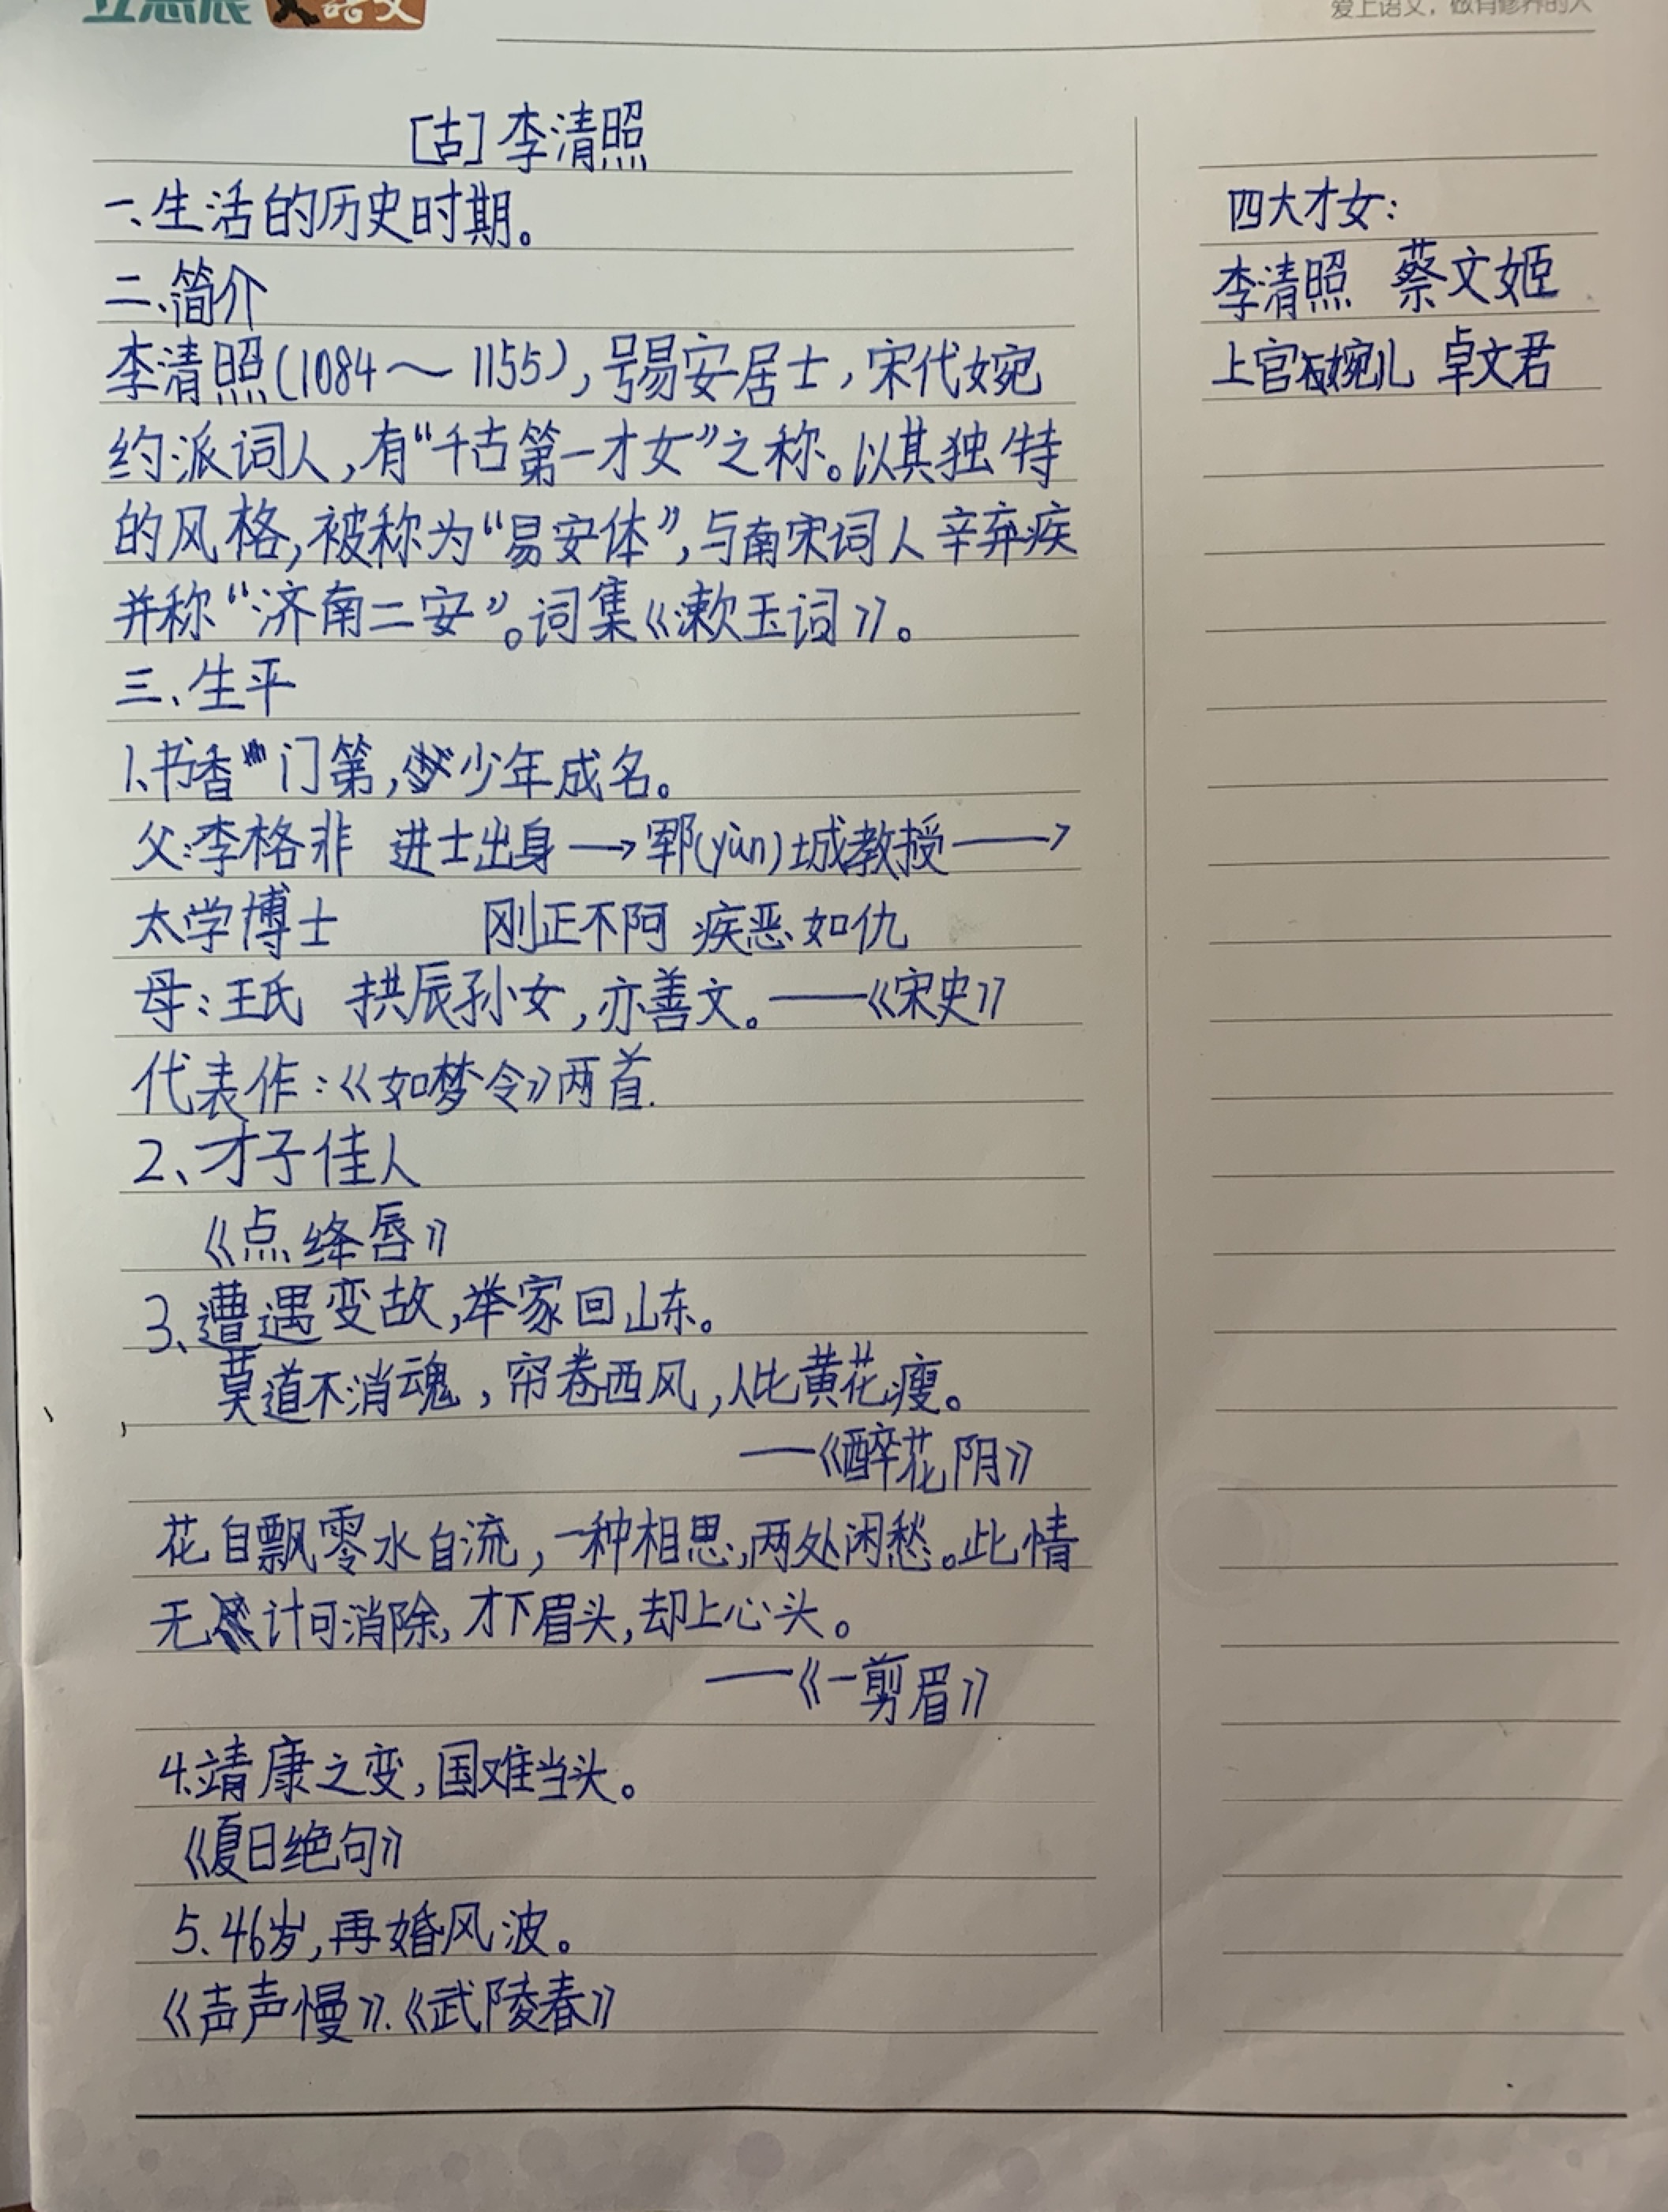 语文
爱上语文，做有修养的人
[古]李清照
一、生活的历史时期。
二、简介
李清照(1084～1155)，号易安居士，宋代婉
约派词人，有“千古第一才女”之称。以其独特
的风格，被称为“易安体”，与南宋词人辛弃疾
并称“济南二安”。词集《漱玉词》。
三、生平
1、书香门第，少年成名。
父：李格非 进士出身→郓(yùn)城教授→
太学博士 刚正不阿 疾恶如仇
母：王氏 拱辰孙女，亦善文。——《宋史》
代表作：《如梦令》两首.
2、才子佳人
《点绛唇》
3、遭遇变故，举家回山东。
莫道不消魂，帘卷西风，人比黄花瘦。
——《醉花阴》
花自飘零水自流，一种相思，两处闲愁。此情
无计可消除，才下眉头，却上心头。
——《一剪眉》
4.靖康之变，国难当头。
《夏日绝句》
5、46岁，再婚风波。
《声声慢》.《武陵春》
四大才女：
李清照 蔡文姬
上官婉儿 卓文君